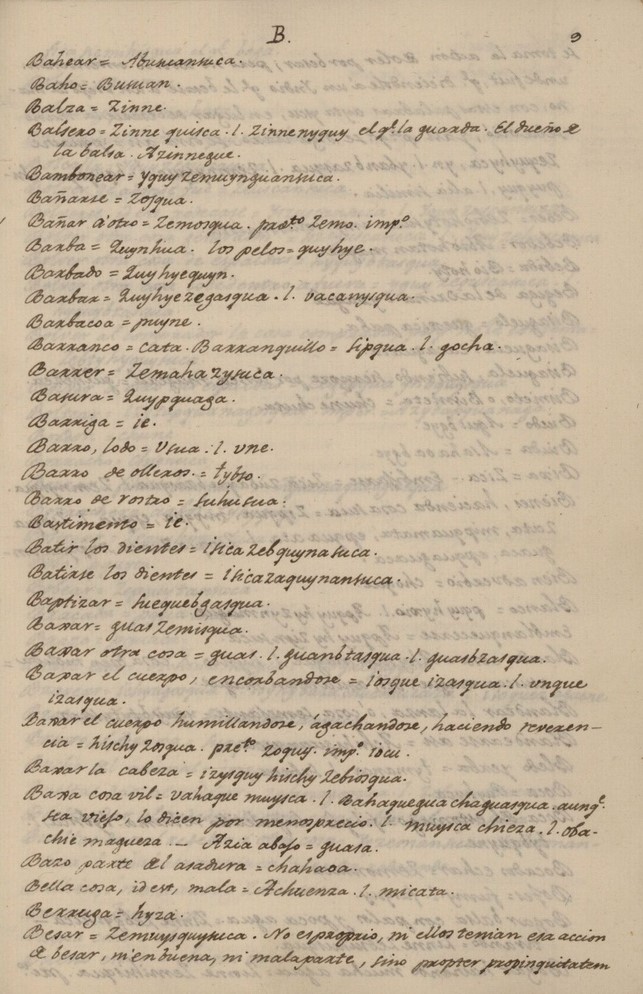 B. 9
Bahear = Abusuansuca.
Baho = Busuan.
Balza = Zinne.
Balsero = Zinne quisca. l. Zinnenyquy el q.e la guarda. El dueño de
la balsa. Azinnegue.
Bambonear = yquy zemuynguansuca.
Bañarse = Zosqua.
Bañar à otro = Zemosqua. præt.to Zemo. imp.o
Barba = Quynhua. los pelos = quyhye.
Barbado = Quyhyequyn.
Barbar = Quyhyezegasqua. l. vacanysqua.
Barbacoa = puyne.
Barranco = cata. Barranquillo = sipqua. l. gocha.
Barrer = Zemahazysuca.
Basura = Quypquaga.
Barriga = ie.
Barro, lodo = Usua. l. vne.
Barro de olleros = tybso.
Barro de rostro = suhusua.
Bastimento = ie.
Batir los dientes = isicazebquynasuca.
Batirse los dientes = isicazaquynansuca.
Baptizar = suequebgasqua.
Baxar = guas zemisqua.
Baxar otra cosa = guas. l. guanbtasqua. l. guasbzasqua.
Baxar el cuerpo, encorbandose = iosque izasqua. l. vngue
izasqua.
Baxar el cuerpo humillandose, agachandose, haciendo reveren-
cia = hischy zosqua. pret.to zoquy. imp.o iocu.
Baxar la cabeza = izysquy hischy zebiosqua.
Baxa cosa vil = vahaque muysca. l. Bahaqueguachaguasqua. aunq.e
sea viejo, lo dicen por menosprecio. l. muysca chieza. l. oba-
chie magueza. - Azia abajo = guasa.
Bazo parte del asadura = chahaoa.
Bella cosa, id est, mala = Achuenza. l. micata.
Berruga = hyza.
Besar = Zemuysquysuca. No es proprio, ni ellos tenian esa accion
de besar, ni en buena, ni mala parte, sino propter propinquitatem